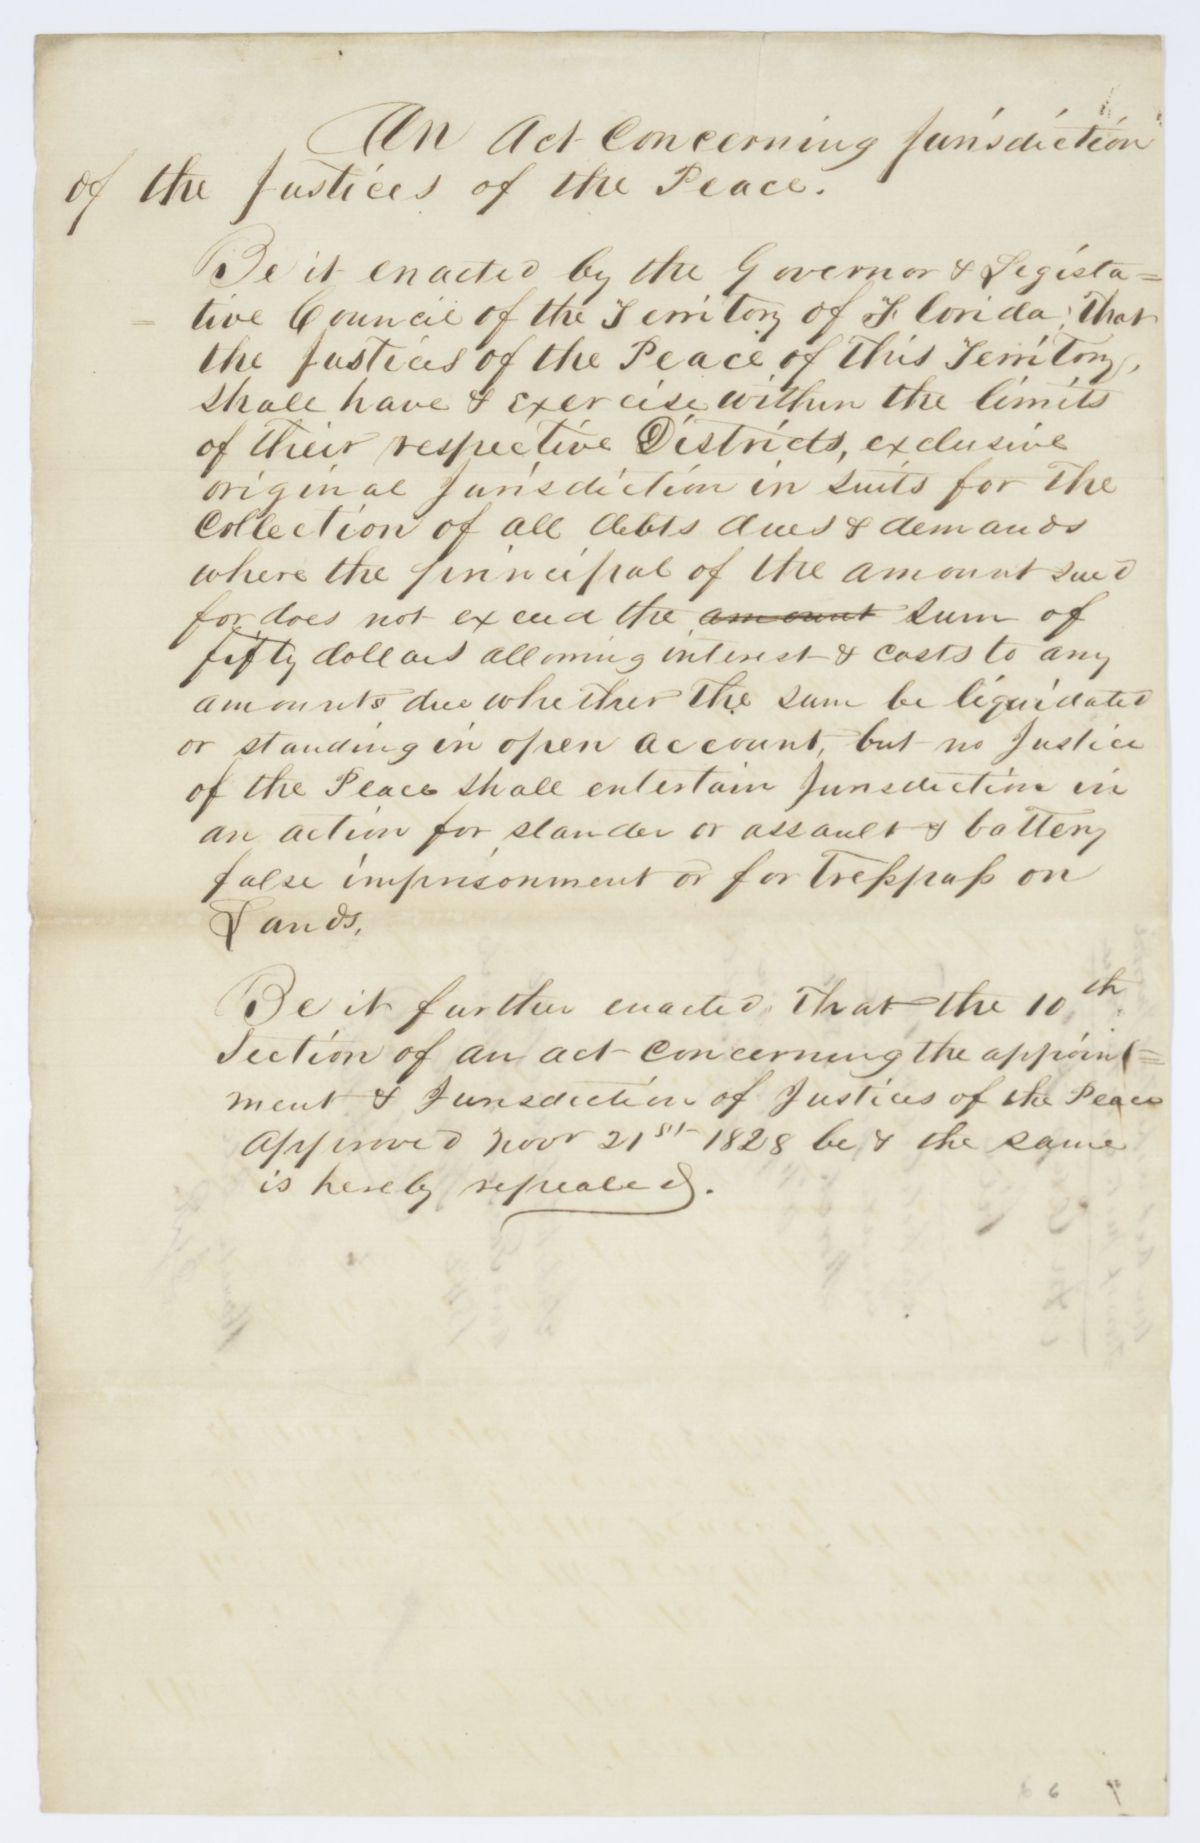 An Act Concerning Jurisdiction
of the Justices of the Peace.
Be it enacted by the Governor & Legista=
=tive Council of the Territory of Florida; That
the Justices of the Peace of this Territory,
shall have & exercise within the limits
of their respective Districts, exclusive
original Jurisdiction in suits for the
Collection of all debts dues & demands
where the principal of the amount sued
for does not exceed the amount sum of
fifty dollars allowing interest & costs to any
amounts due whether the sum be liquidated
or standing in open account, but no Justice
of the Peace shall entertain Jurisdiction in
an action for slander or assault & battery
false imprisonment or for Treſspaſs on
Lands.
Be it further enacted, That the 10th
Section of an act concerning the appoint=
ment & Jurisdiction of Justices of the Peace
approved Novr 21st 1828 be & the same
is hereby repealed.
6 6